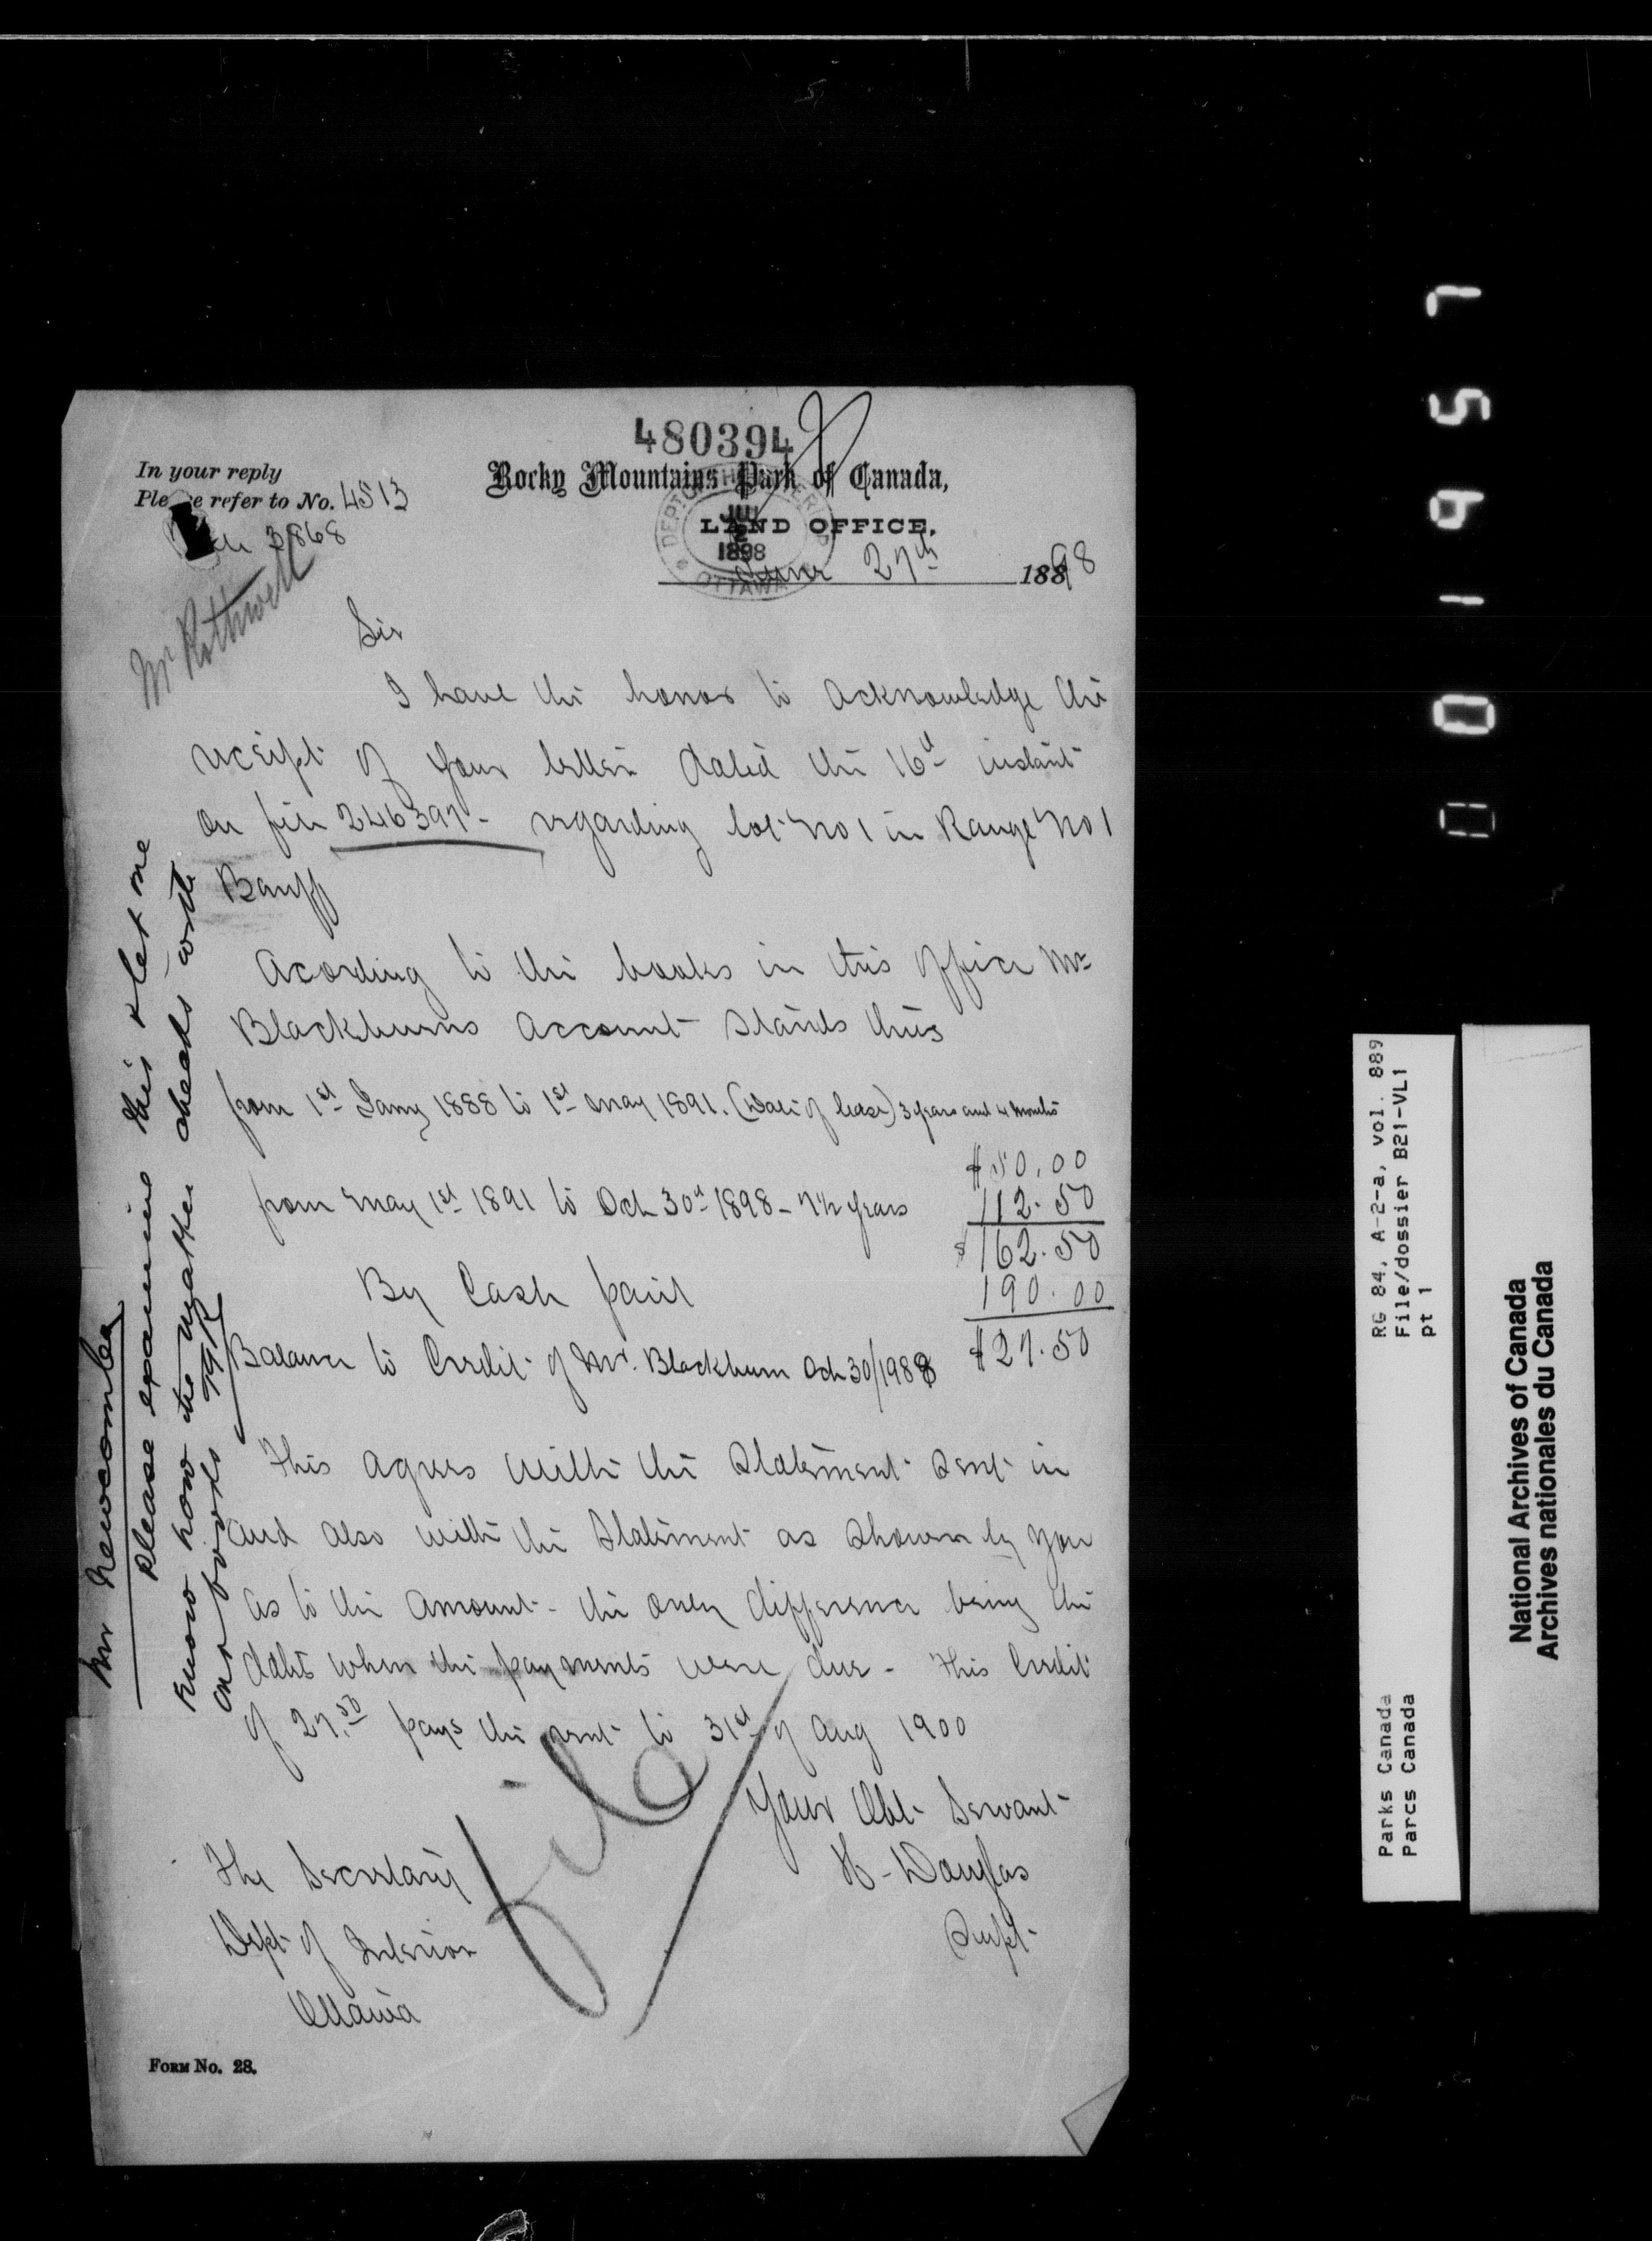 480394
In your reply
Please refer to No. 4513
3868
Rocky Mountains Park of Canada,
LAND OFFICE,
DEPT OF THE INTERIOR
JUL
2
1898
OTTAWA
June 27th 1898
Mr Rothwell
Sir
I have the honor to acknowledge the
receipt of your letter dated the 16th instant
on file 246397 - regarding lot No 1 in Range No 1
Banff
Acording to the books in this office Mr
Blackburns account stands thus
from 1st Jany 1888 to 1st May 1891. (Date of lease) 3 years and 4 months
$50.00
from May 1st 1891 to Oct 30th 1898 - 7 1/2 years 112.50
$162.50
By Cash paid 190.00
Balance to Credit of Mr. Blackburn Oct 30/1988 $27.50
This agrees with the Statement sent in
and also with the Statement as shown by you
as to the amount - the only difference being the
date when the payments were due - This Credit
of 27.50 pays the rent to 31st of Aug 1900
Your Obt Servant
H - Douglas
Supt
The Secretary
Dept of Interior
Ottawa
file
FORM No. 28.
Mr Newcombe
Please examine this & let me
know how the matter checks with
our books
RG 84, A-2-a, vol. 889
File/dossier B21-VL1
pt 1
Parks Canada
Parcs Canada
National Archives of Canada
Archives nationales du Canada
001957